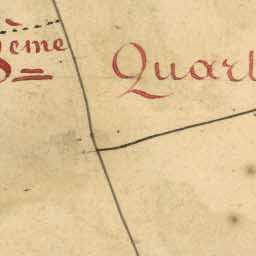 ème Quart